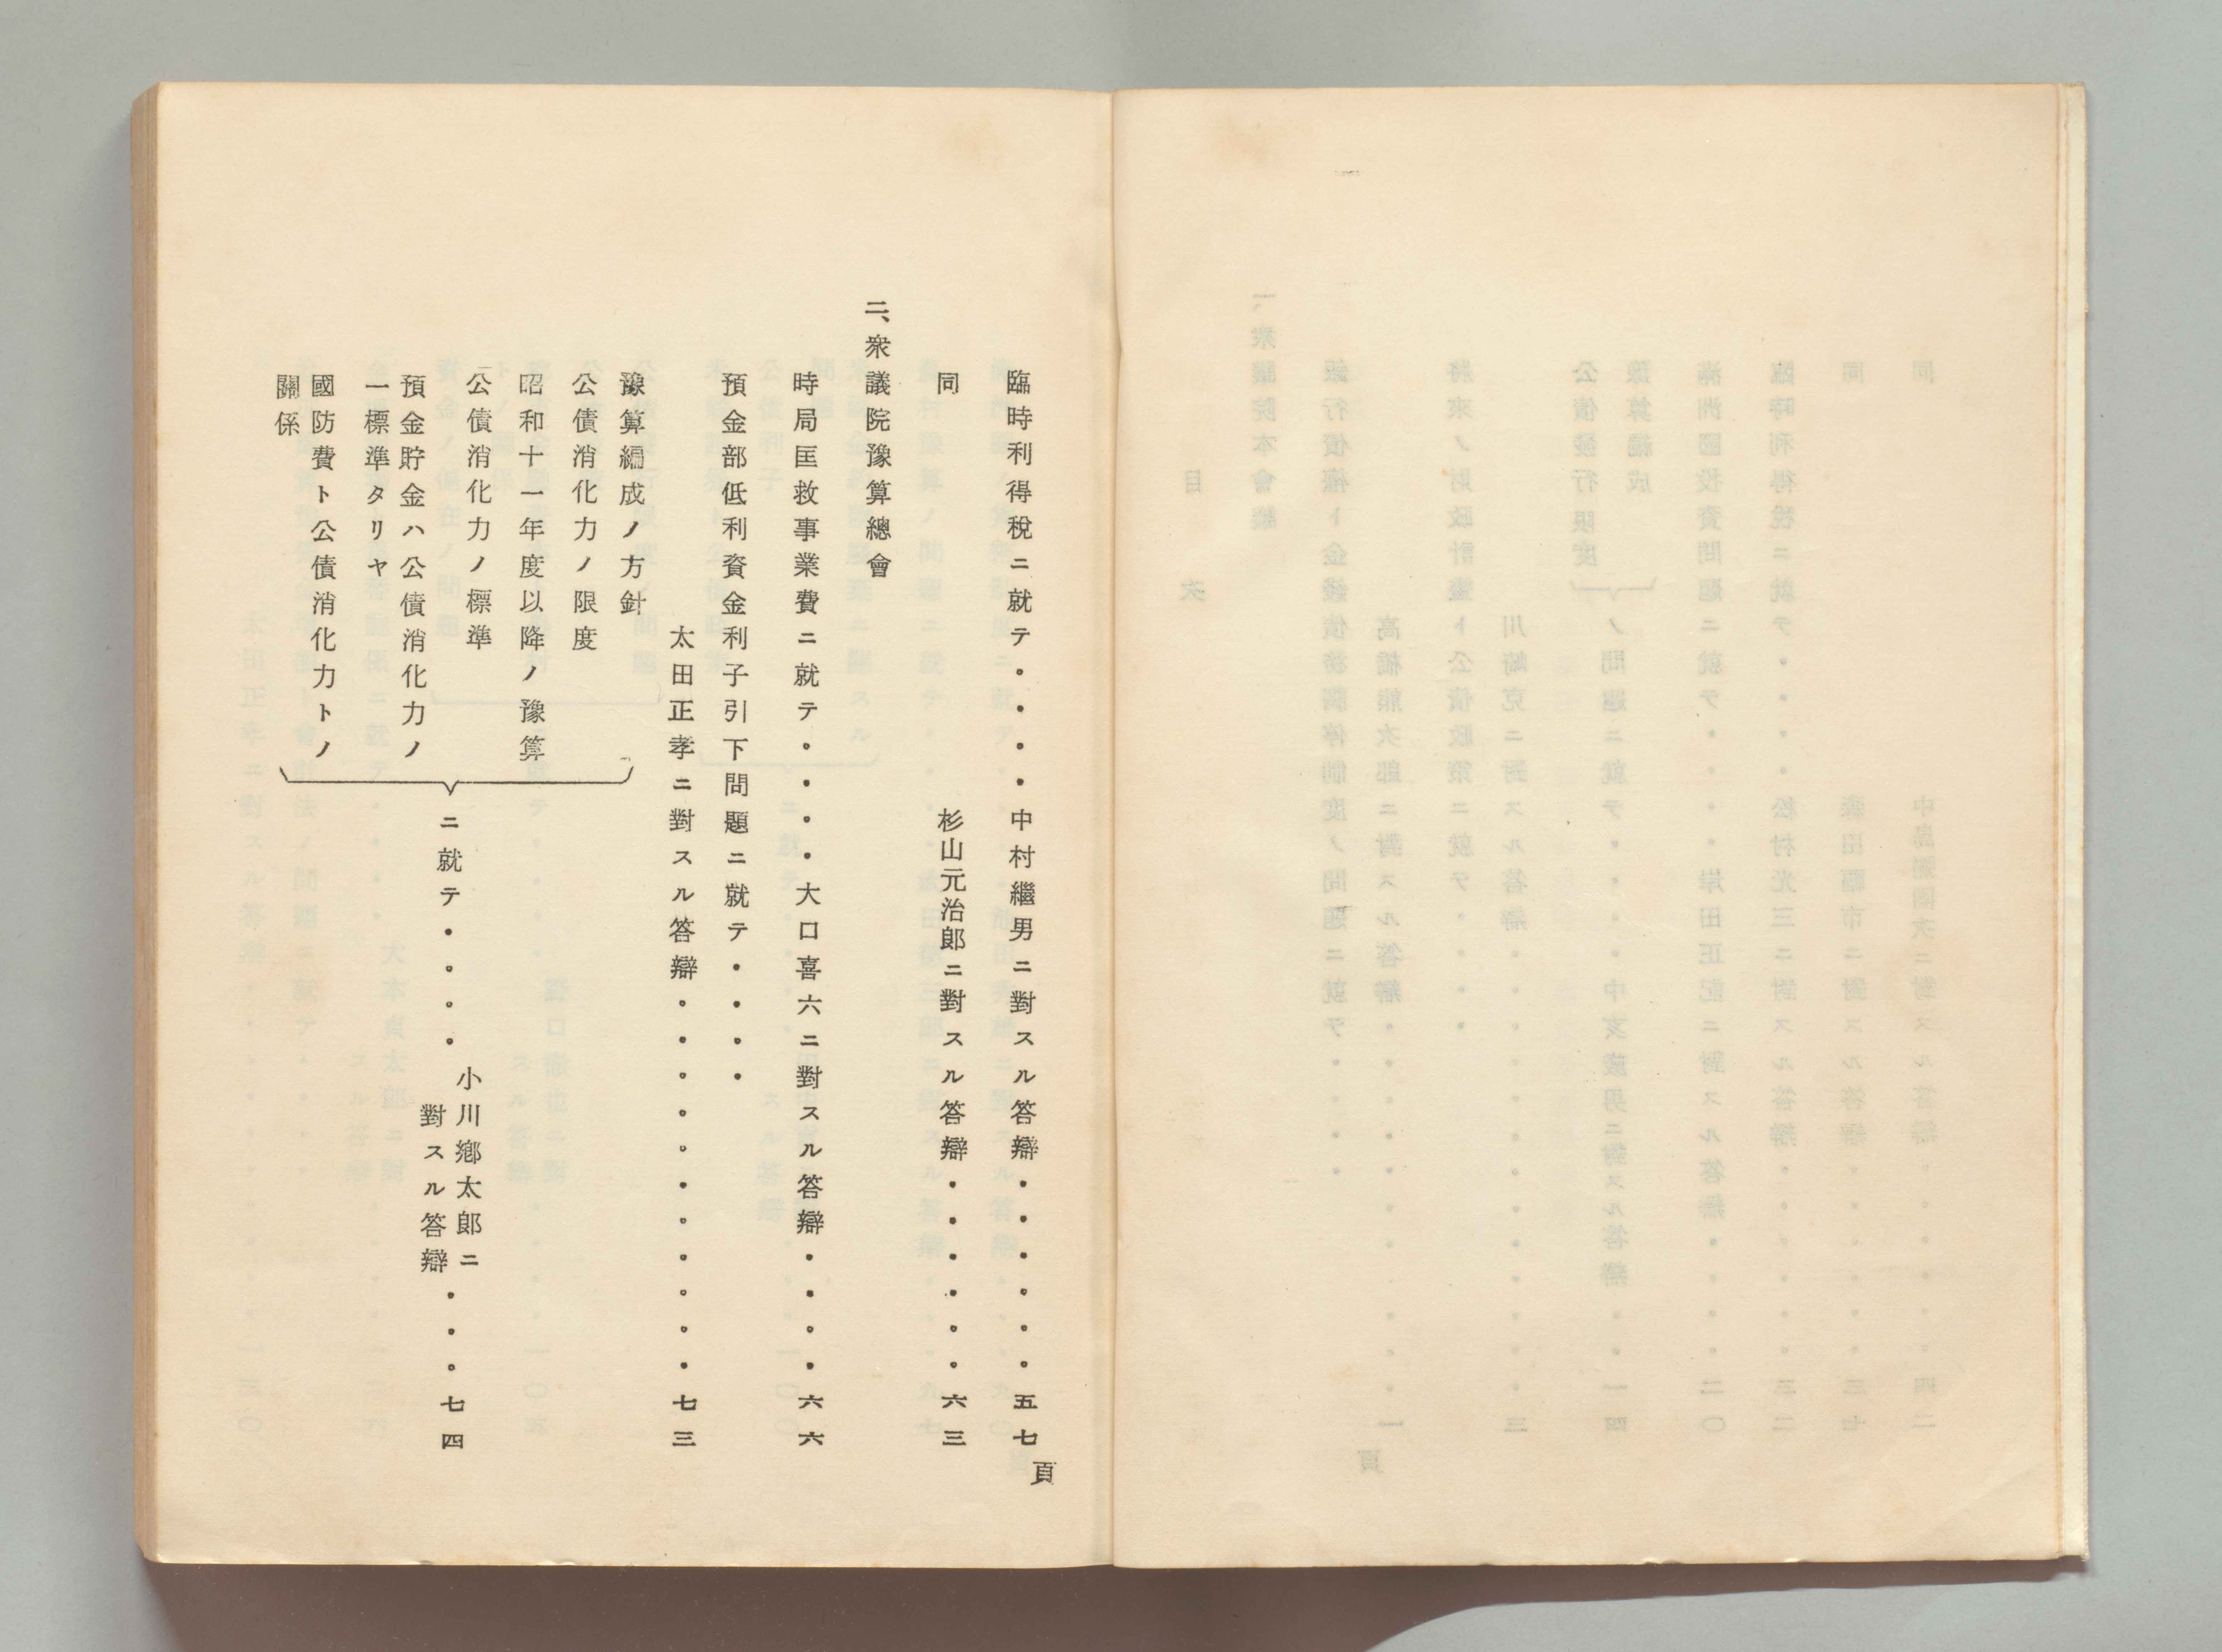 臨時利得稅ニ就テ・・・・中村繼男ニ對スル答辯・・・・・・五七頁
同　杉山元治郞ニ對スル答辯・・・・・・六三
二、衆議院豫算總會
時局匡救事業費ニ就テ・・・・大口喜六ニ對スル答辯・・・・六六
預金部低利資金利子引下問題ニ就テ・・・・
太田正孝ニ對スル答辯・・・・・・・・・・・七三
豫算編成ノ方針
公債消化力ノ限度
昭和十一年度以降ノ豫算
公債消化力ノ標準
預金貯金ハ公債消化力ノ
一標準タリヤ
國防費ト公債消化力トノ
關係
ニ就テ・・・・
小川鄕太郞ニ
對スル答辯・・・七四